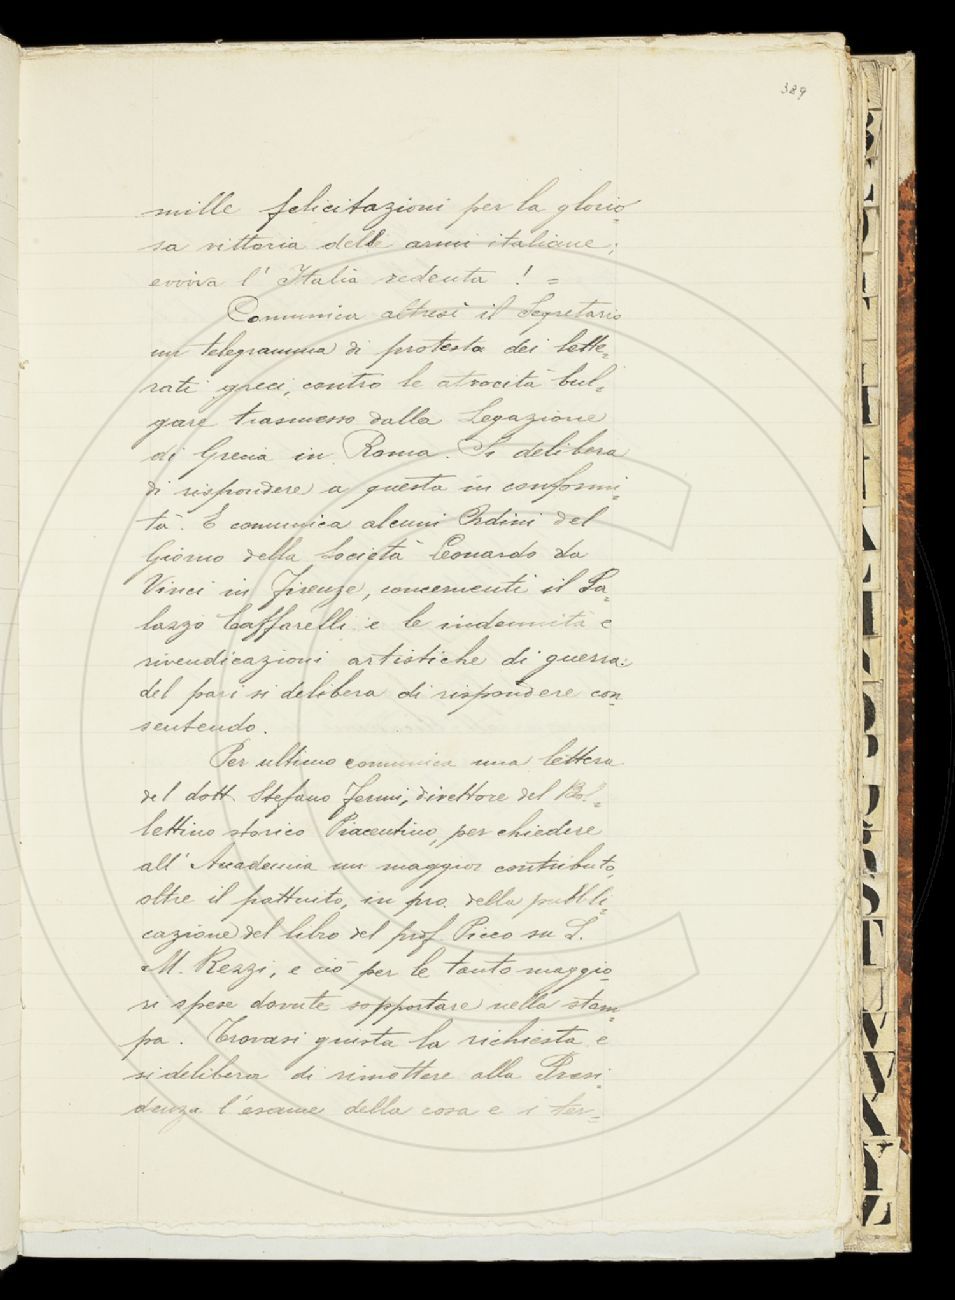 389
mille felicitazioni per la glorio=
sa vittoria delle armi italiane;
evviva l'Italia redenta! =
Comunica altresì il Segretario
un telegramma di protesta dei lette=
rati greci, contro le atrocità bul=
gare trasmesso dalla Legazione
di Grecia in Roma. Si delibera
di rispondere a questa in conformi=
tà. E comunica alcuni Ordini del
Giorno della Società Leonardo da
Vinci in Firenze, concernenti il Pa=
lazzo Caffarelli e le indennità e
rivendicazioni artistiche di guerra:
del pari si delibera di rispondere con=
sentendo.
Per ultimo comunica una lettera
del dott. Stefano Fermi, direttore del Bol=
lettino storico Piacentino, per chiedere
all'Accademia un maggior contributo,
oltre il pattuito, in pro della pubbli=
cazione del libro del prof Picco su L.
M. Rezzi, e ciò per le tanto maggio=
ri spese dovute sopportare nella stam=
pa. Trovasi giusta la richiesta e
si delibera di rimettere alla Presi=
denza l'esame della cosa e i ter=